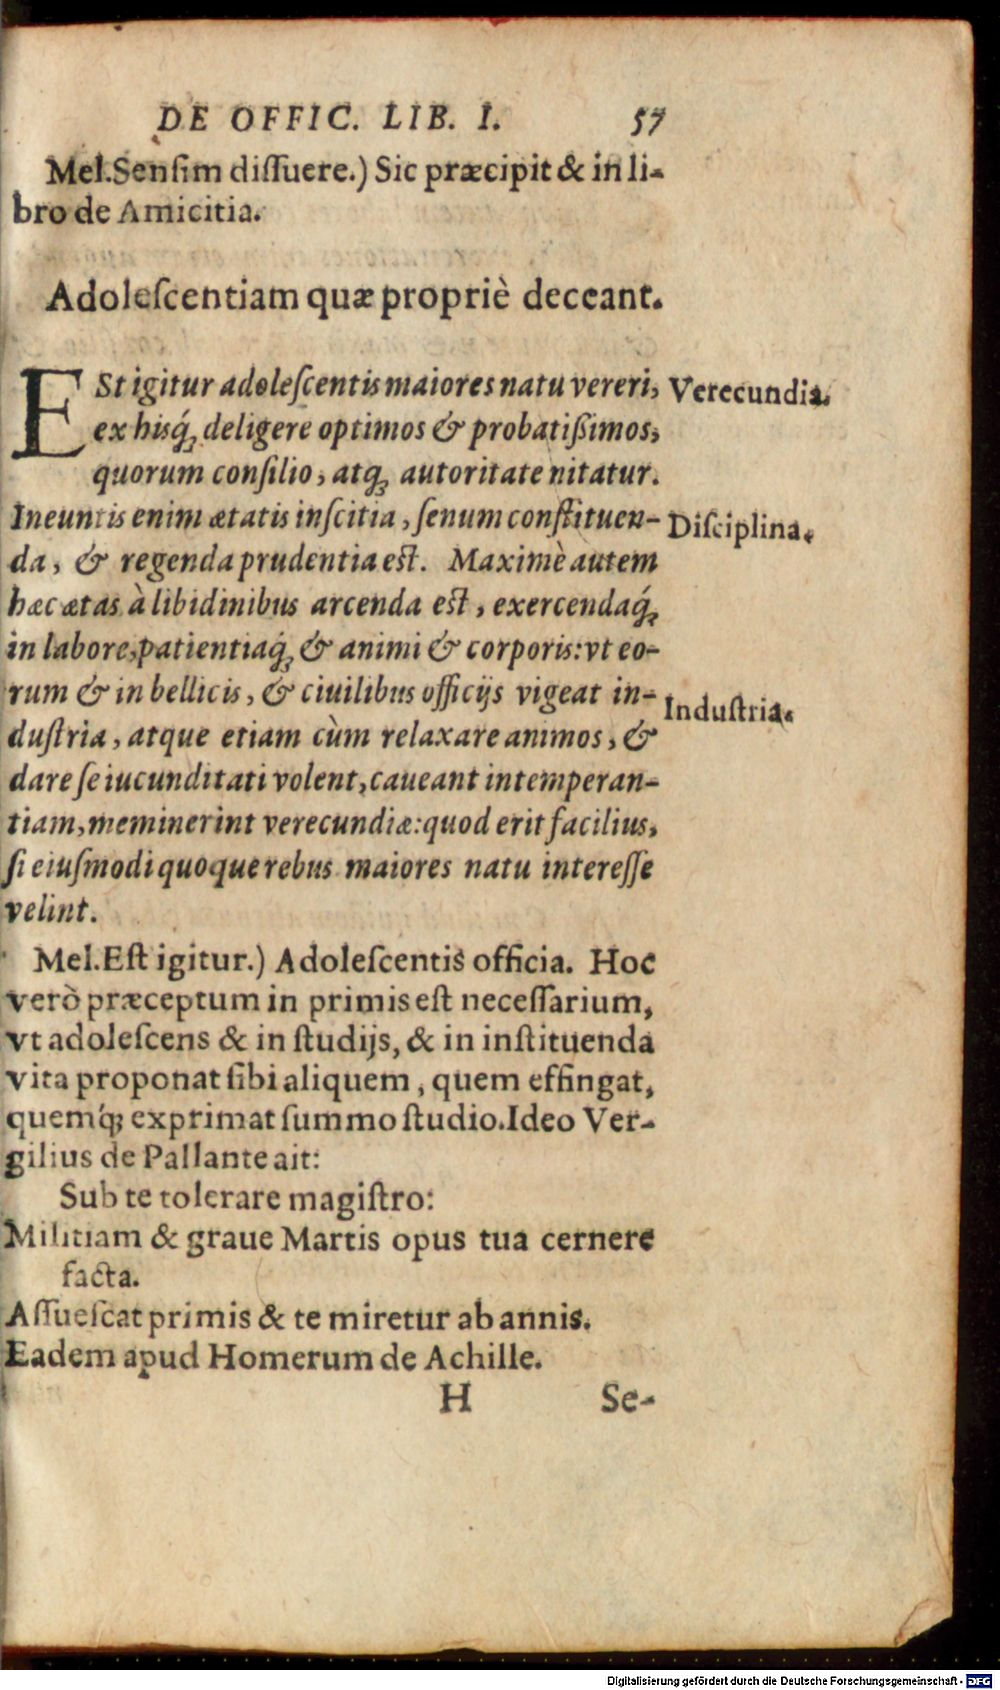 DE OFFIC. LIB. I. 57
Mel.Senſim diſſuere.) Sic præcipit & in li-
bro de Amicitia.
Adoleſcentiam quæ propriè deceant.
ESt igitur adoleſcentis maiores natu vereri,
Verecundia.
ex hisq́; deligere optimos & probatißimos,
quorum conſilio, atq; autoritate nitatur.
Ineuntis enim ætatis inſcitia, ſenum conſtituen-
Diſciplina.
da, & regenda prudentia eſt. Maximè autem
hæc ætas à libidinibus arcenda eſt, exercendaq́;
in labore, patientiaq́; & animi & corporis: vt eo-
rum & in bellicis, & ciuilibus officijs vigeat in-
Induſtria.
duſtria, atque etiam cùm relaxare animos, &
dare ſe iucunditati volent, caueant intemperan-
tiam, meminerint verecundiæ: quod erit facilius,
ſi eiuſmodi quoque rebus maiores natu intereſſe
velint.
Mel.Eſt igitur.) Adoleſcentis officia. Hoc
verò præceptum in primis eſt neceſſarium,
vt adoleſcens & in ſtudijs, & in inſtituenda
vita proponat ſibi aliquem, quem effingat,
quemq́; exprimat ſummo ſtudio. Ideo Ver-
gilius de Pallante ait:
Sub te tolerare magiſtro:
Militiam & graue Martis opus tua cernere
facta.
Aſſueſcat primis & te miretur ab annis.
Eadem apud Homerum de Achille.
H Se-
Digitalisierung gefördert durch die Deutsche Forschungsgemeinschaft - DFG